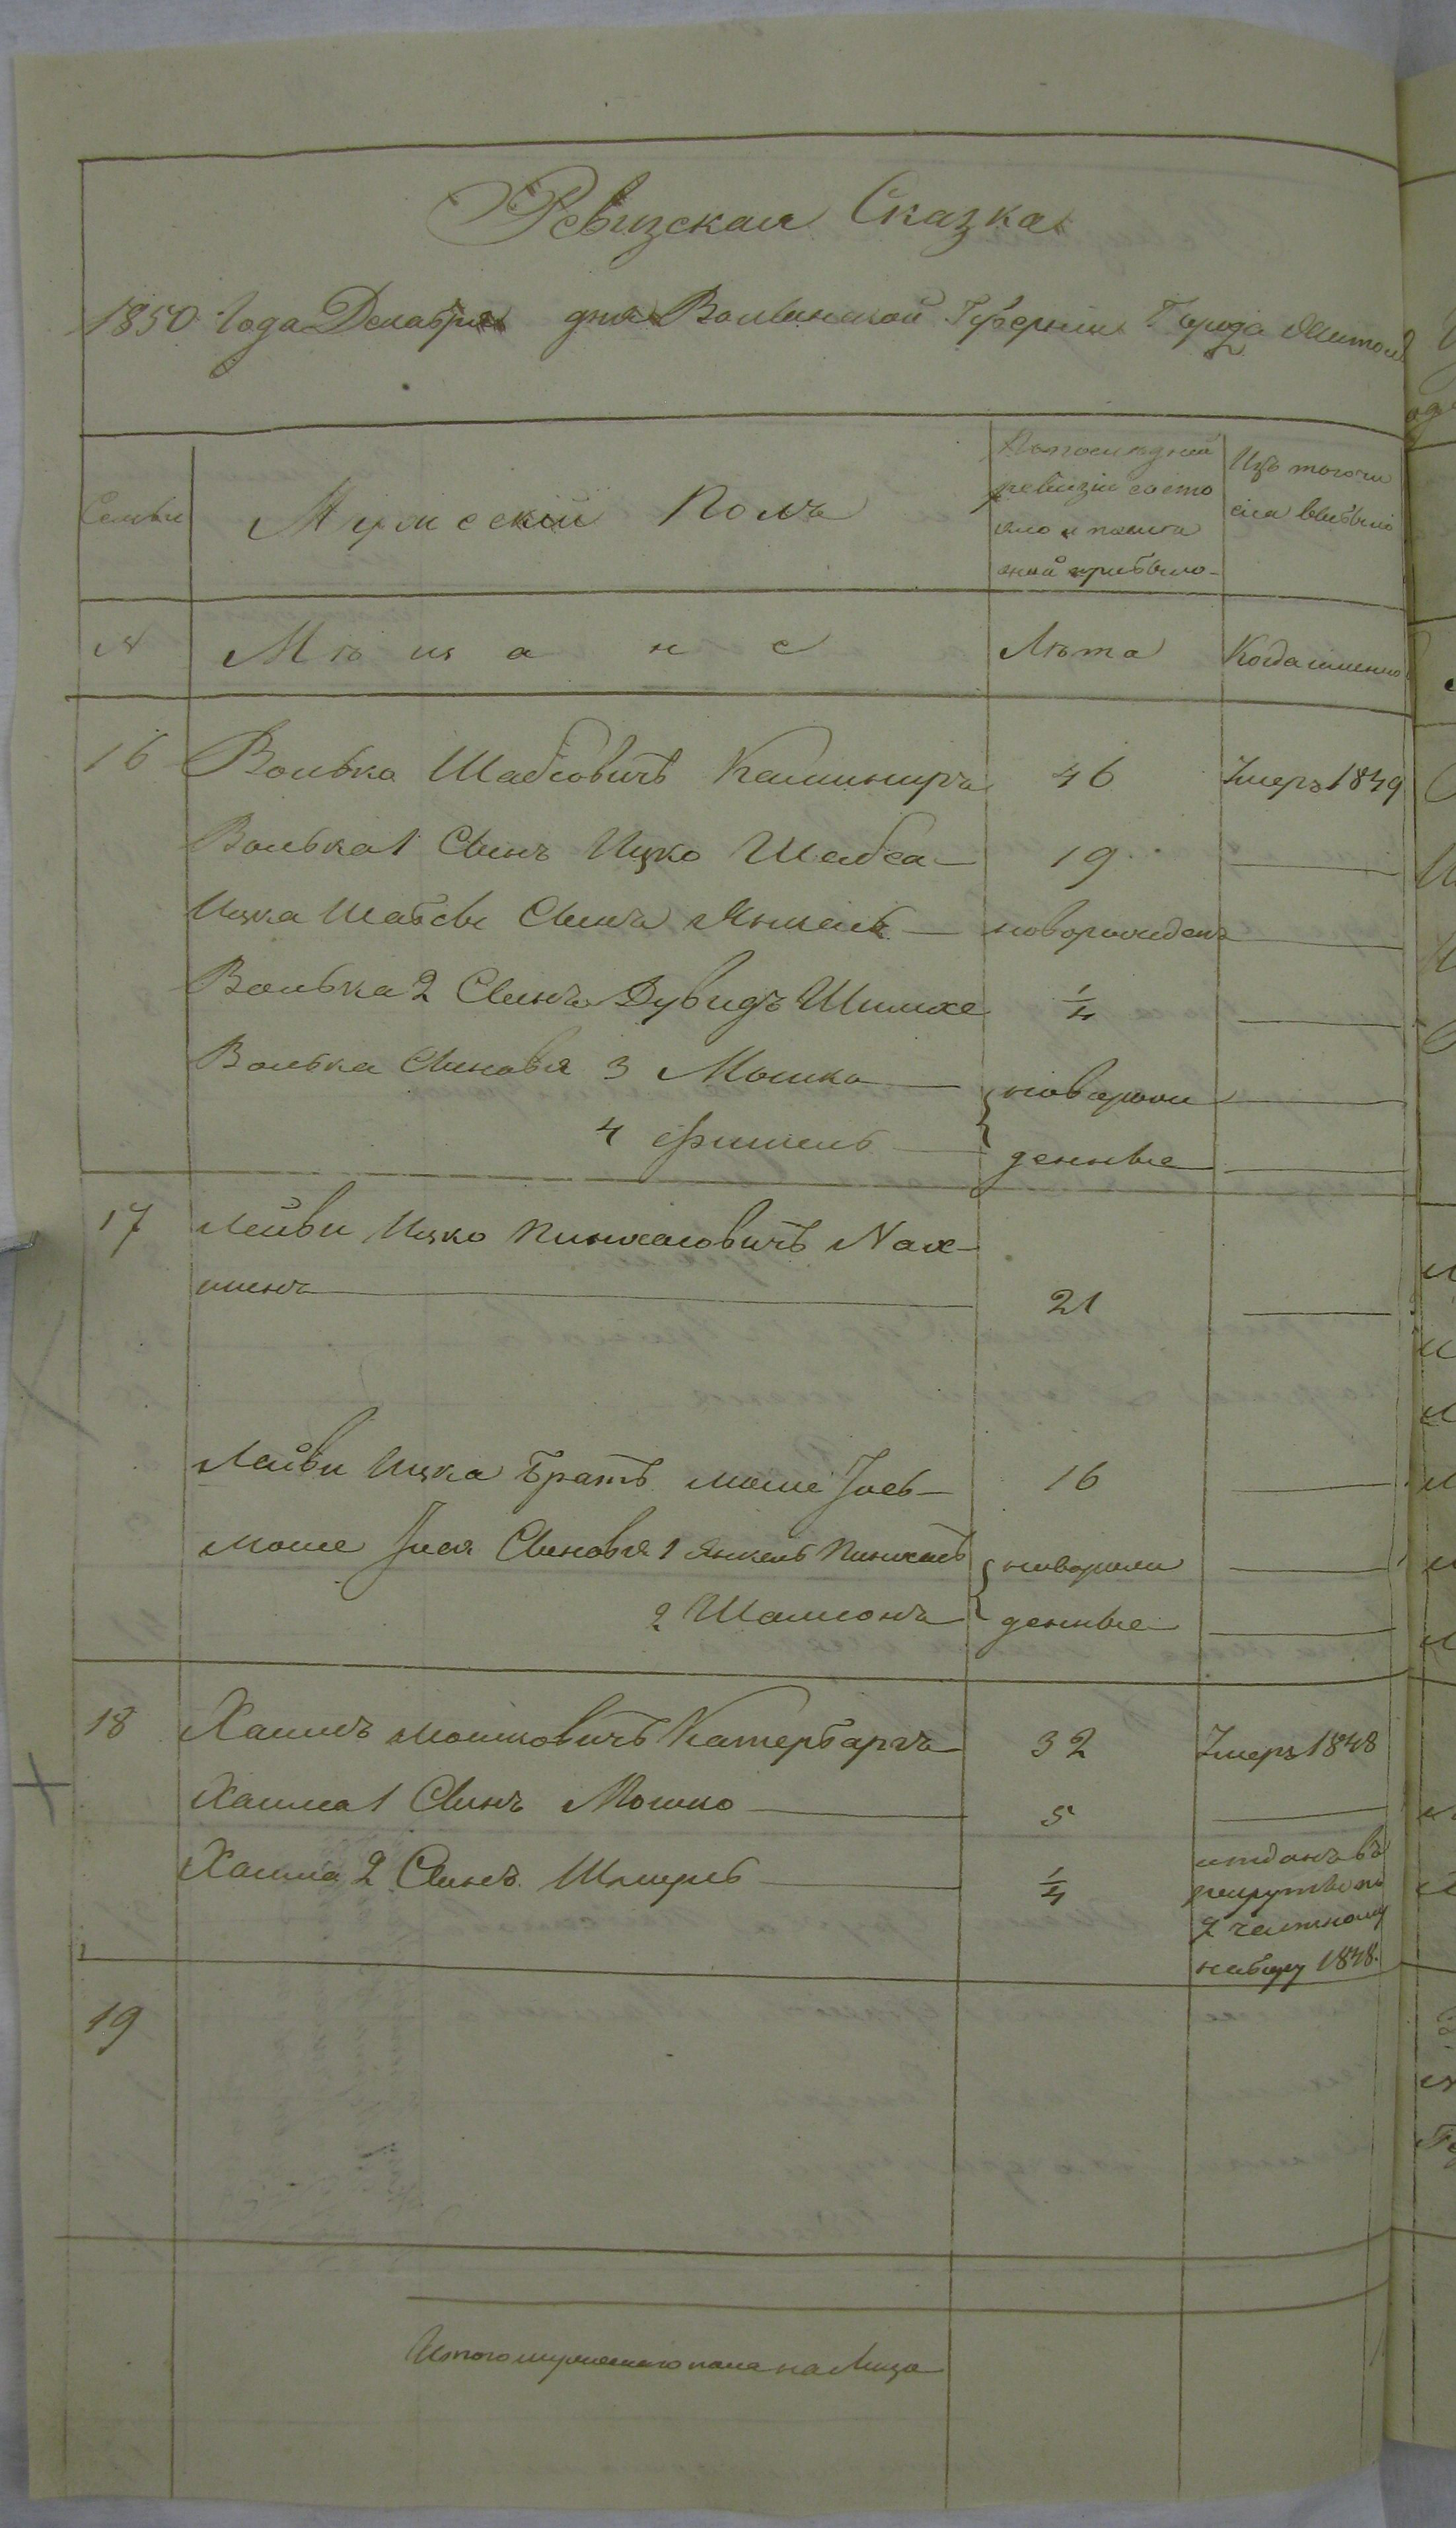 Ревизская Сказка
1850 Года Декабря дня Волынской Губернии Города Житом
Семьи
Мужеский Полъ
По последней
ревизіи состо
яло и после
оной прибыло
Изъ того чи
сла выбыло
№
Мѣщане
Лѣта
Когда именно
16 Волько Шабсовичъ 46 Умеръ 1849
Волька 1 Сынъ Ицко Шабса 19
Ицка Шабсы Сынъ Янкель новорожденъ
Волька 2 Сынъ Дувидъ Шлиоме 1/4
Волька Сыновья 3 Мошко новорож
4 Фишель денные
17 Лейви Ицко Пинхасовичъ Нах
21
Лейви Ицка Братъ Моше Іоель 16
Моше Іоеля Сыновья 1 Янкель Пинхасъ новорож
2 Шаломонъ денные
18 Хаимъ Мошковичъ Катербаргъ 32 Умеръ 1848
Хаима 1 Сынъ Мошко 5
Хаима 2 Сынъ Шмуль 1/4 отданъ въ
рекруты по
7 частному
набору 1848.
19
Итого мужескаго пола на Лицо